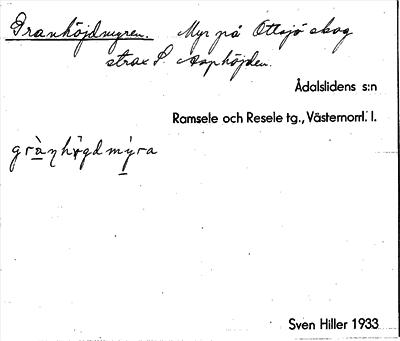 Granhöjdmyren. Myr på Ottsjö skog
strax S. Asphöjden.
Ådalslidens s:n
Ramsele och Resele tg., Västernorrl. l.
grànhögdmỳra
Sven Hiller 1933